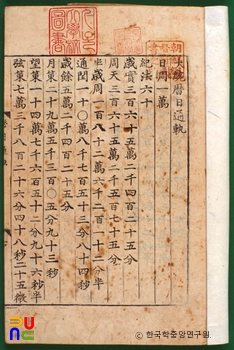 大統曆日通軌
日周一萬
紀法六十
歲實三百六十五萬二千四百二十五分
周天三百六十五萬二千五百七十五分
半歲周一百八十二萬六千二百一十二分半
通閏一十〇萬八千七百五十三分八十四秒
歲餘五萬二千四百二十五分
月策二十九萬五千三百〇五分九十三秒
望策一十四萬七千六百五十二分九十六秒半
弦策七萬三千八百二十六分四十八秒二十五微
한국학중앙연구원